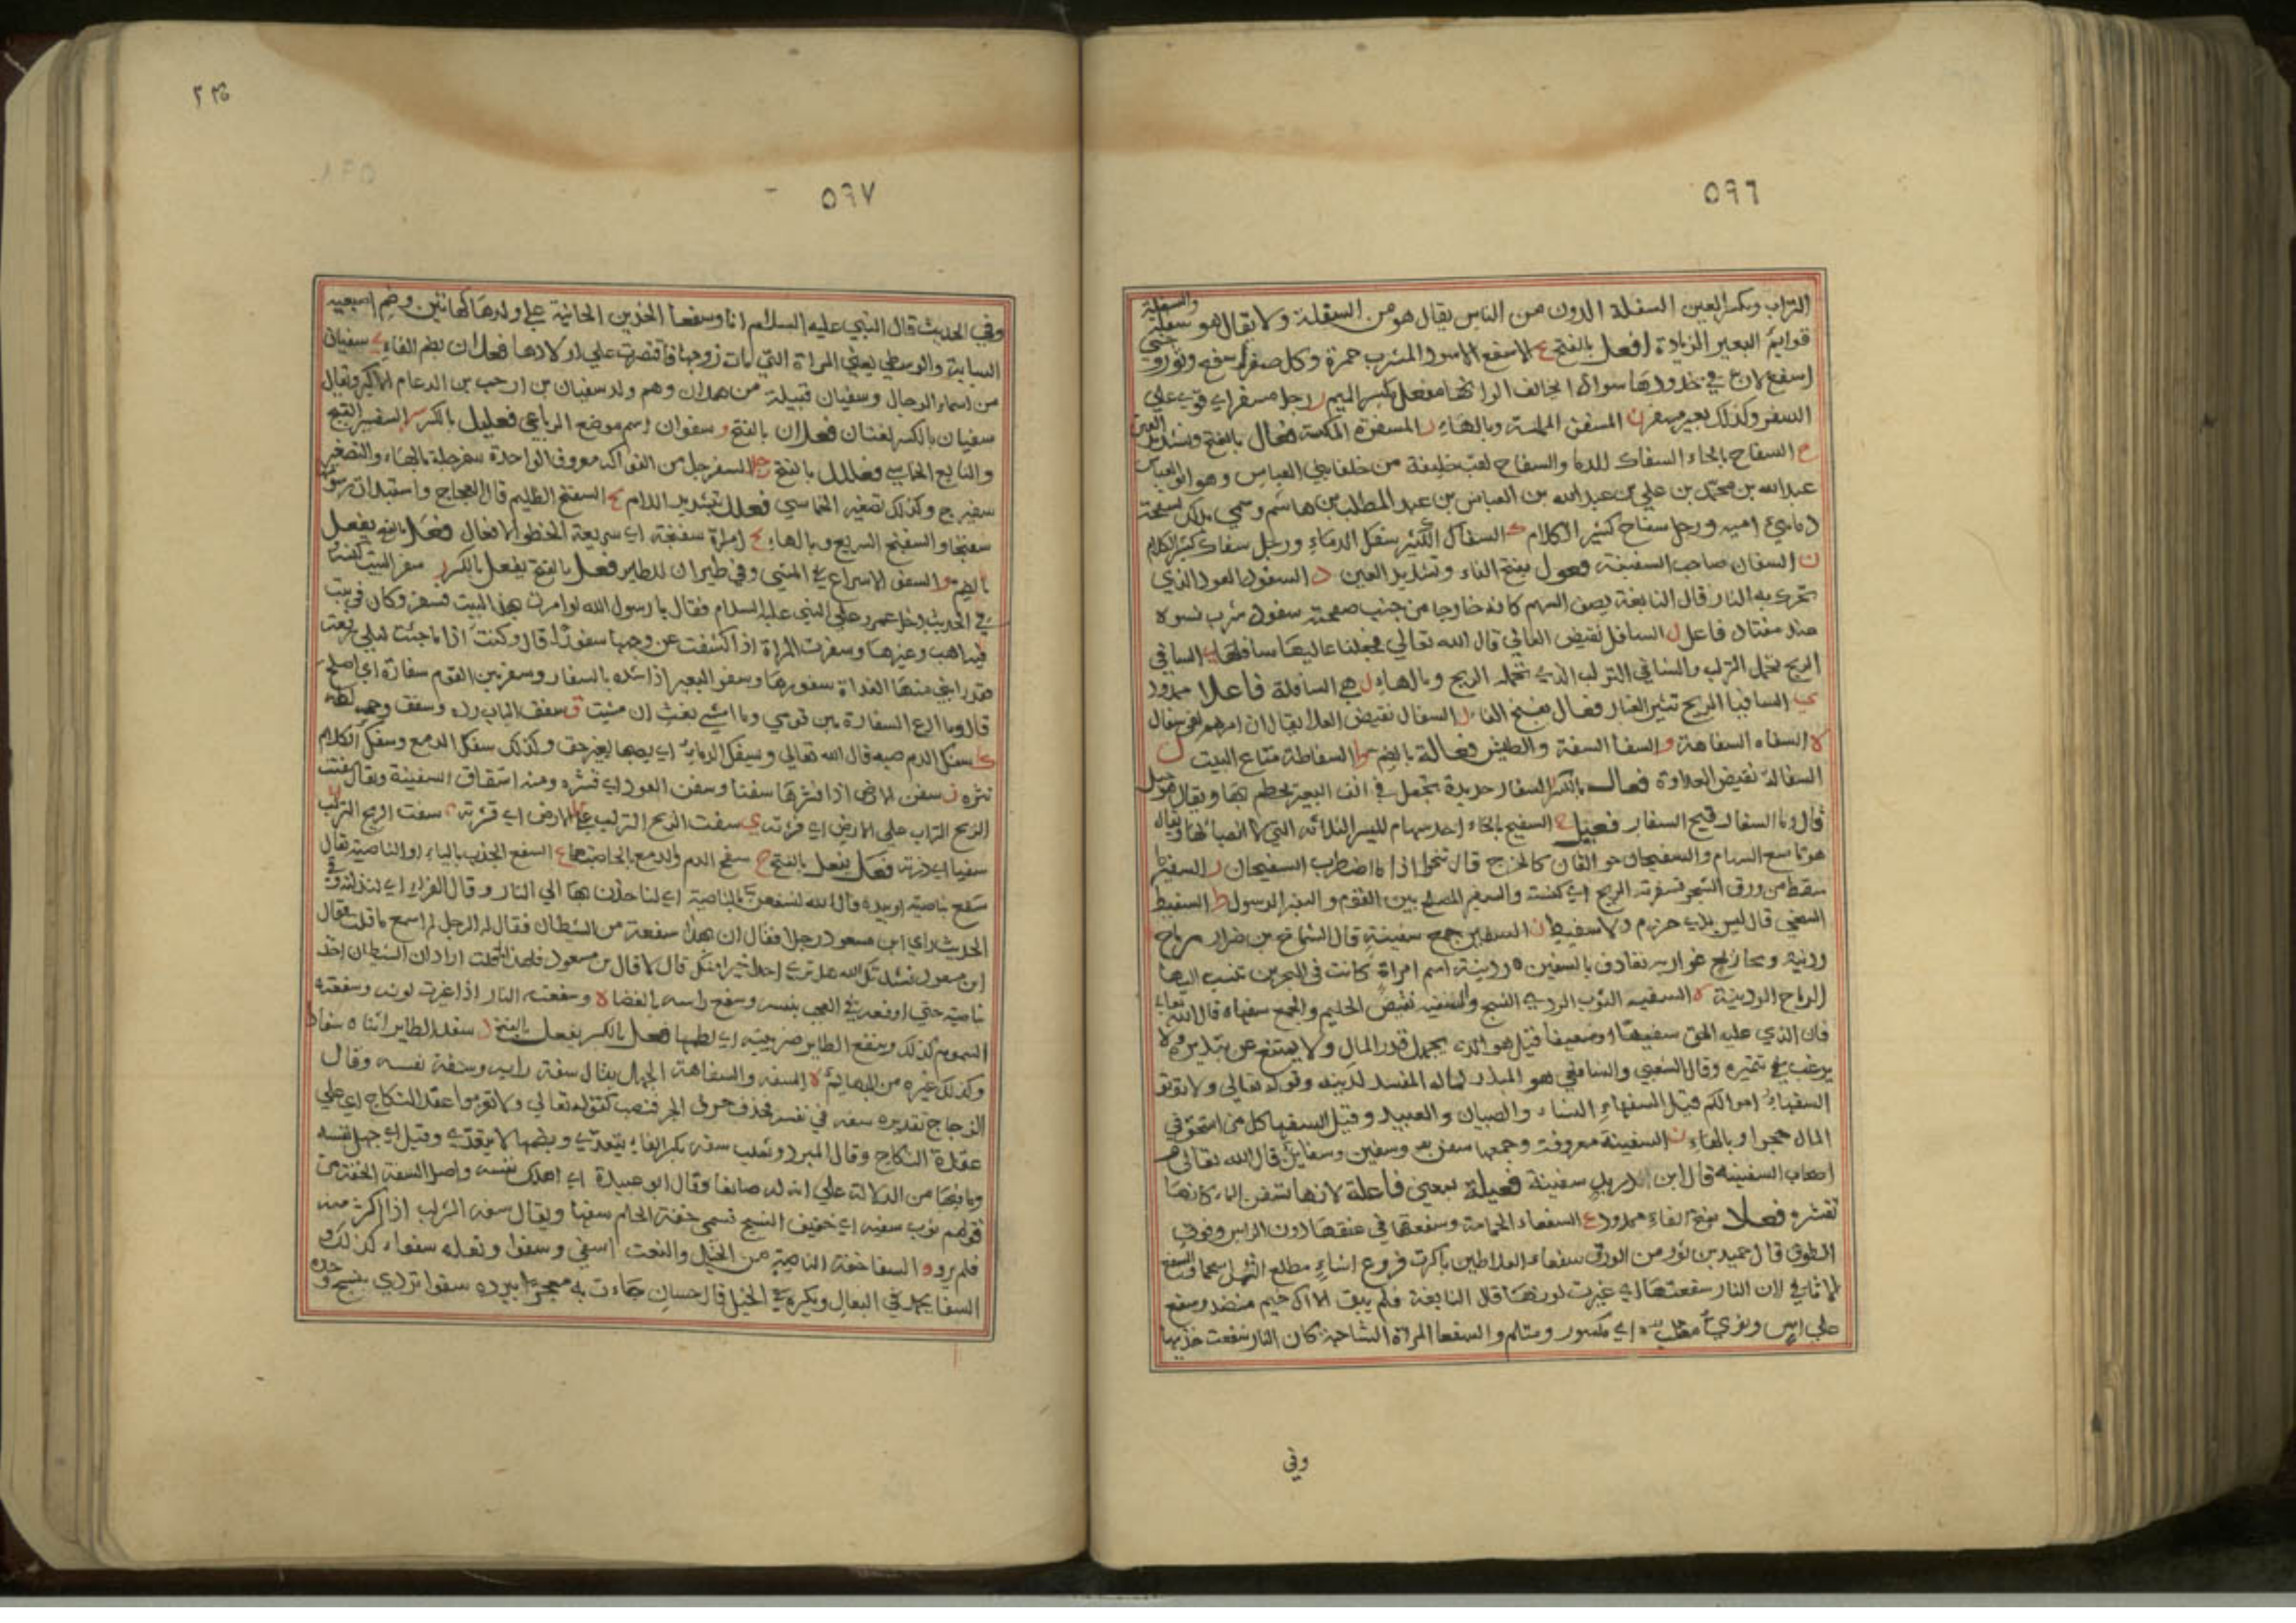 ٥٩٦
التراب وبكسر العين السفلة الدون من الناس يقال هو من السفلة ولا يقال هو سفلة والسفلة
قوايم البعير الزيادة افعل بالفتح ع الاسفع الاسود المشرب حمرة وكل صقر اسفع وثور
اسفع لان في خدودها سوادا يخالف الوانها مفعل بكسر الميم ر رجل مسفر اي قوي علي
السفر وكذلك بعير مسفر ن المسفن وبالهاء ر المسفرة المكنسة فعال بالفتح وتشديد العين
ح السفاح بالحاء السفاك للدما والسفاح لقب خليفة من خلفا بني العباس وهو ابو العباس
عبد الله بن محمد بن علي بن عبد الله بن العباس بن عبد المطلب بن هاشم وسمي بذلك
دما بني اميه ورجل سفاح كثير الكلام ك السفاك الكثير سفك الدماء ورجل سفاك كثير الكلام
ن السفان صاحب السفينة فعول بفتح الفاء وتشديد العين د السفود العود الذي
تحرك به النار قال النابغة يصف السهم كانه خارجا من جنب صفحته سفود شرب نسوه
عند مفتاد فاعل ل السافل نقيض العالي قال الله تعالي فجعلنا عاليها سافلها ي السافي
الريح تحمل التراب والسافي التراب الذي تحمله الريح وبالهاء ل هي السافلة فاعلا ممدود
ي السافيا الريح تثير الغبار فعال بفتح الفا ل السفال نقيض العلا يقال ان امرهم لفي سفال
ه السفاه السفاهة و السفا السفة والطيش فعالة بالضم ط السفاطة متاع البيت ل
السفالة نقيض العلاوة فعال بالكسر ر السفار حديدة تجعل في انف البعير يخطم بها
قال وما السفار قبح السفار فعيل ح السفيح بالحاء احد سهام الميسر الثلاثة التي لا انصبا لها ويقال
السهام والسفيحان جوالقان كالخرج قال تنجوا اذا ما اضطرب السفيحان ر السفير ما
سقط من ورق الشجر تسفرته الريح اي كنسته والسفير المصلح بين القوم والسفير الرسول ط السفيط
السخي قال ليس بذي حزم ولا سفيط ن السفين جمع سفينة قال الشماخ بن ضرار رماح
ردينة وبحار لج غواربه تقاذف بالسفين ه ردينة اسم امراة كانت في البحرين تنسب اليها
الرماح الردينية ه السفيه الثوب الردي النسج والسفيه نقيض الحليم والجمع سفهاء قال الله تعالي
فان الذي عليه الحق سفيها او ضعيفا قيل هو الذي يجهل قدر المال ولا يمتنع من تبذيره ولا
يرغب في تثميره وقال الشعبي والشافعي هو المبذر لماله المفسد لدينه وقوله تعالي ولا توتو
السفهاء اموالكم قيل السفهاء النساء والصبيان والعبيد وقيل السفها كل من استحق في
المال حجرا وبالهاء ن السفينة معروفة وجمعها سفن وسفين وسفاين قال الله تعالي
اصحاب السفينه قال ابن دريد سفينة فعيلة بمعني فاعلة لانها تسفن الماء كانها
تقشره فعلا بفتح الفاء ممدود ع السفعاء الحمامة وسفعتها في عنقها دون الراس وفوق
الطوق قال حميد بن ثور من الورق سفعاء العلاطين باكرت فروع اشاء مطلع الشمس اسحما
الاثافي لان النار سفعتها اي غيرت لونها قال النابغة فلم يبق الا ال خيم منضد وسفع
علي اس ونؤي اي مكسور ومتثلم والسفعا المراة الشاحبة كان النار سفعت خديها
وفي
٥٩٧
وفي الحديث قال النبي عليه السلام انا وسفعا الخدين الحانية علي ولدها كهاتين وضم اصبعيه
السبابة والوسطي يعني المراة التي مات زوجها فاقتصرت علي اولادها فعلان بضم الفاء ي سفيان
من اسماء الرجال وسفيان قبيلة من همدان وهم ولد سفيان بن ارحب بن الدعام الاكبر ويقال
سفيان بالكسر لغتان فعلان بالفتح و سفوان اسم موضع الرباعي فعليل بالكسر السفسير الفيج
والتابع الخماسي فعلل بالفتح جل السفرجل من الفواكه معروف الواحدة سفرجلة بالهاء والتصغير
سفيرج وكذلك تصغير الخماسي فعلل بتشديد اللام ج السفنج الظليم قال العجاج واستبدلت رسومه
سفنجا والسفنج السريع وبالهاء ج امراة سفنجة اي سريعة الخطو الافعال فعل بالفتح يفعل
بالضم و السفو الاسراع في المشي وفي طيران الطاير فعل بالفتح يفعل بالكسر ر سفر البيت كنسه
في الحديث دخل عمر علي النبي عليه السلام فقال يا رسول الله لو امرت بهذا البيت فسفر وكان في بيت
فيه اهب وغيرها وسفرت المراة اذا كشفت عن وجهها سفورا قال وكنت اذا ما جئت ليلي تبرقعت
فقد رابني منها الغداة سفورها وسفر البعير اذا شده بالسفار وسفر بين القوم سفارة اي اصلح
قال وما ادع السفارة بين قومي وما امشي بغش ان مشيت ق سفق الباب رده وسفق وجهه لطمه
ك سفك الدم صبه قال الله تعالي ويسفك الدماء اي يصبها بغير حق وكذلك سفك الدمع وسفك الكلام
نثره ن سفن الارض اذا قشرها سفنا وسفن العود اي قشره ومنه اشتقاق السفينة ويقال سفنت
الريح التراب علي الارض اي ي سفت الريح التراب
سفيا اي ذرته فعل يفعل بالفتح ح سفح الدم والدمع بالحا صبهما ع السفع الجذب باليد او الناصية يقال
سفع بناصيته او بيده قال الله لنسفعن بالناصية اي لناخذن بها الي النار وقال الفراء اي لنذلنه وفي
الحديث راي ابن مسعود رجلا فقال ان بهذا سفعة من الشيطان فقال له الرجل لم اسمع ما قلت فقال
ابن مسعود نشدتك الله هل تري احدا خيرا منك قال لا قال بن مسعود فلهذا قلت اراد ان الشيطان اخذ
ناصيته حتي اوقعه في العجب بنفسه وسفع راسه بالعصا وسفعته النار اذا غيرت لونه وسفعته
السموم كذلك وسفع الطاير ضريبته اي لطمها فعل بالكسر يفعل بالفتح د سفد الطاير انثاه سفادا
وكذلك غيره من البهايم ه السفه والسفاهة الجهل يقال سفه رايه وسفه نفسه وقال
الزجاج تقديره سفه في نفسه فحذف حرف الجر فنصب كقوله تعالي ولا تعزموا عقد النكاح اي علي
عقدة النكاح وقال المبرد وثعلب سفه بكسر الفاء يتعدي وبضمها لا يتعدي وقيل اي جهل نفسه
وما فيها من الدلالة علي ان له صانعا وقال ابو عبيدة اي اهلك نفسه واصل السفه الخفة من
قولهم ثوب سفيه اي خفيف النسج تسمي خفة الحلم سفها ويقال سفه الشراب اذا اكثر منه
فلم يرو و السفا خفة الناصية من الخيل والنعت اسفي وسفوا وبغله سفواء كذلك و
السفا يحمد في البغال ويكره في الخيل قال حسان جاءت به معتجرا ببرده سفوا تردي بنسيج وحده